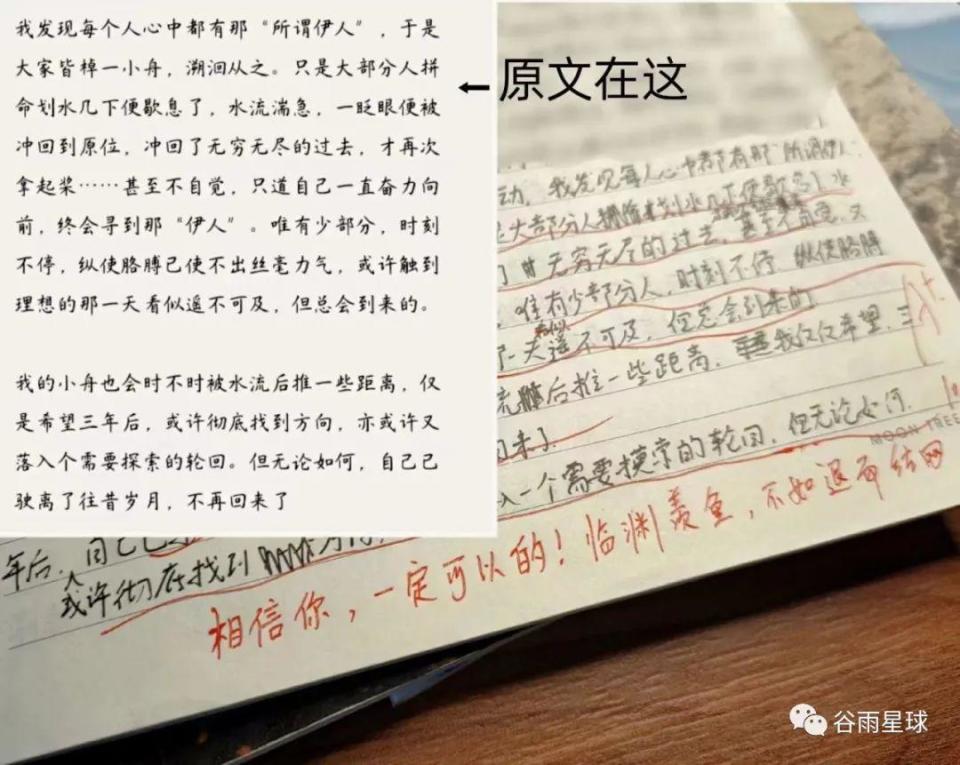 我发现每个人心中都有那“所谓伊人”，于是
大家皆棹一小舟，溯洄从之。只是大部分人拼
命划水几下便歇息了，水流湍急，一眨眼便被
冲回到原位，冲回了无穷无尽的过去，才再次
拿起桨……甚至不自觉，只道自己一直奋力向
前，终会寻到那“伊人”。唯有少部分，时刻
不停，纵使胳膊已使不出丝毫力气，或许触到
理想的那一天看似遥不可及，但总会到来的。
我的小舟也会时不时被水流后推一些距离，仅
是希望三年后，或许彻底找到方向，亦或许又
落入个需要探索的轮回。但无论如何，自己已
驶离了往昔岁月，不再回来了
←原文在这
动，我发现每人心中都有那“所谓伊人
大部分人拼命划水几下便歇息 水
无穷无尽的过去，甚至不自觉，又
唯有少部分人，时刻不停 纵使胳膊
一天看似遥不可及，但总会到来的
流后推一些距离，我仅仅希望，三
回来了
入一个需要摸索的轮回，但无论如何，
MOON TREE
年后，自己已
或许彻底找到方
相信你，一定可以的！临渊羡鱼，不如退而结网
谷雨星球